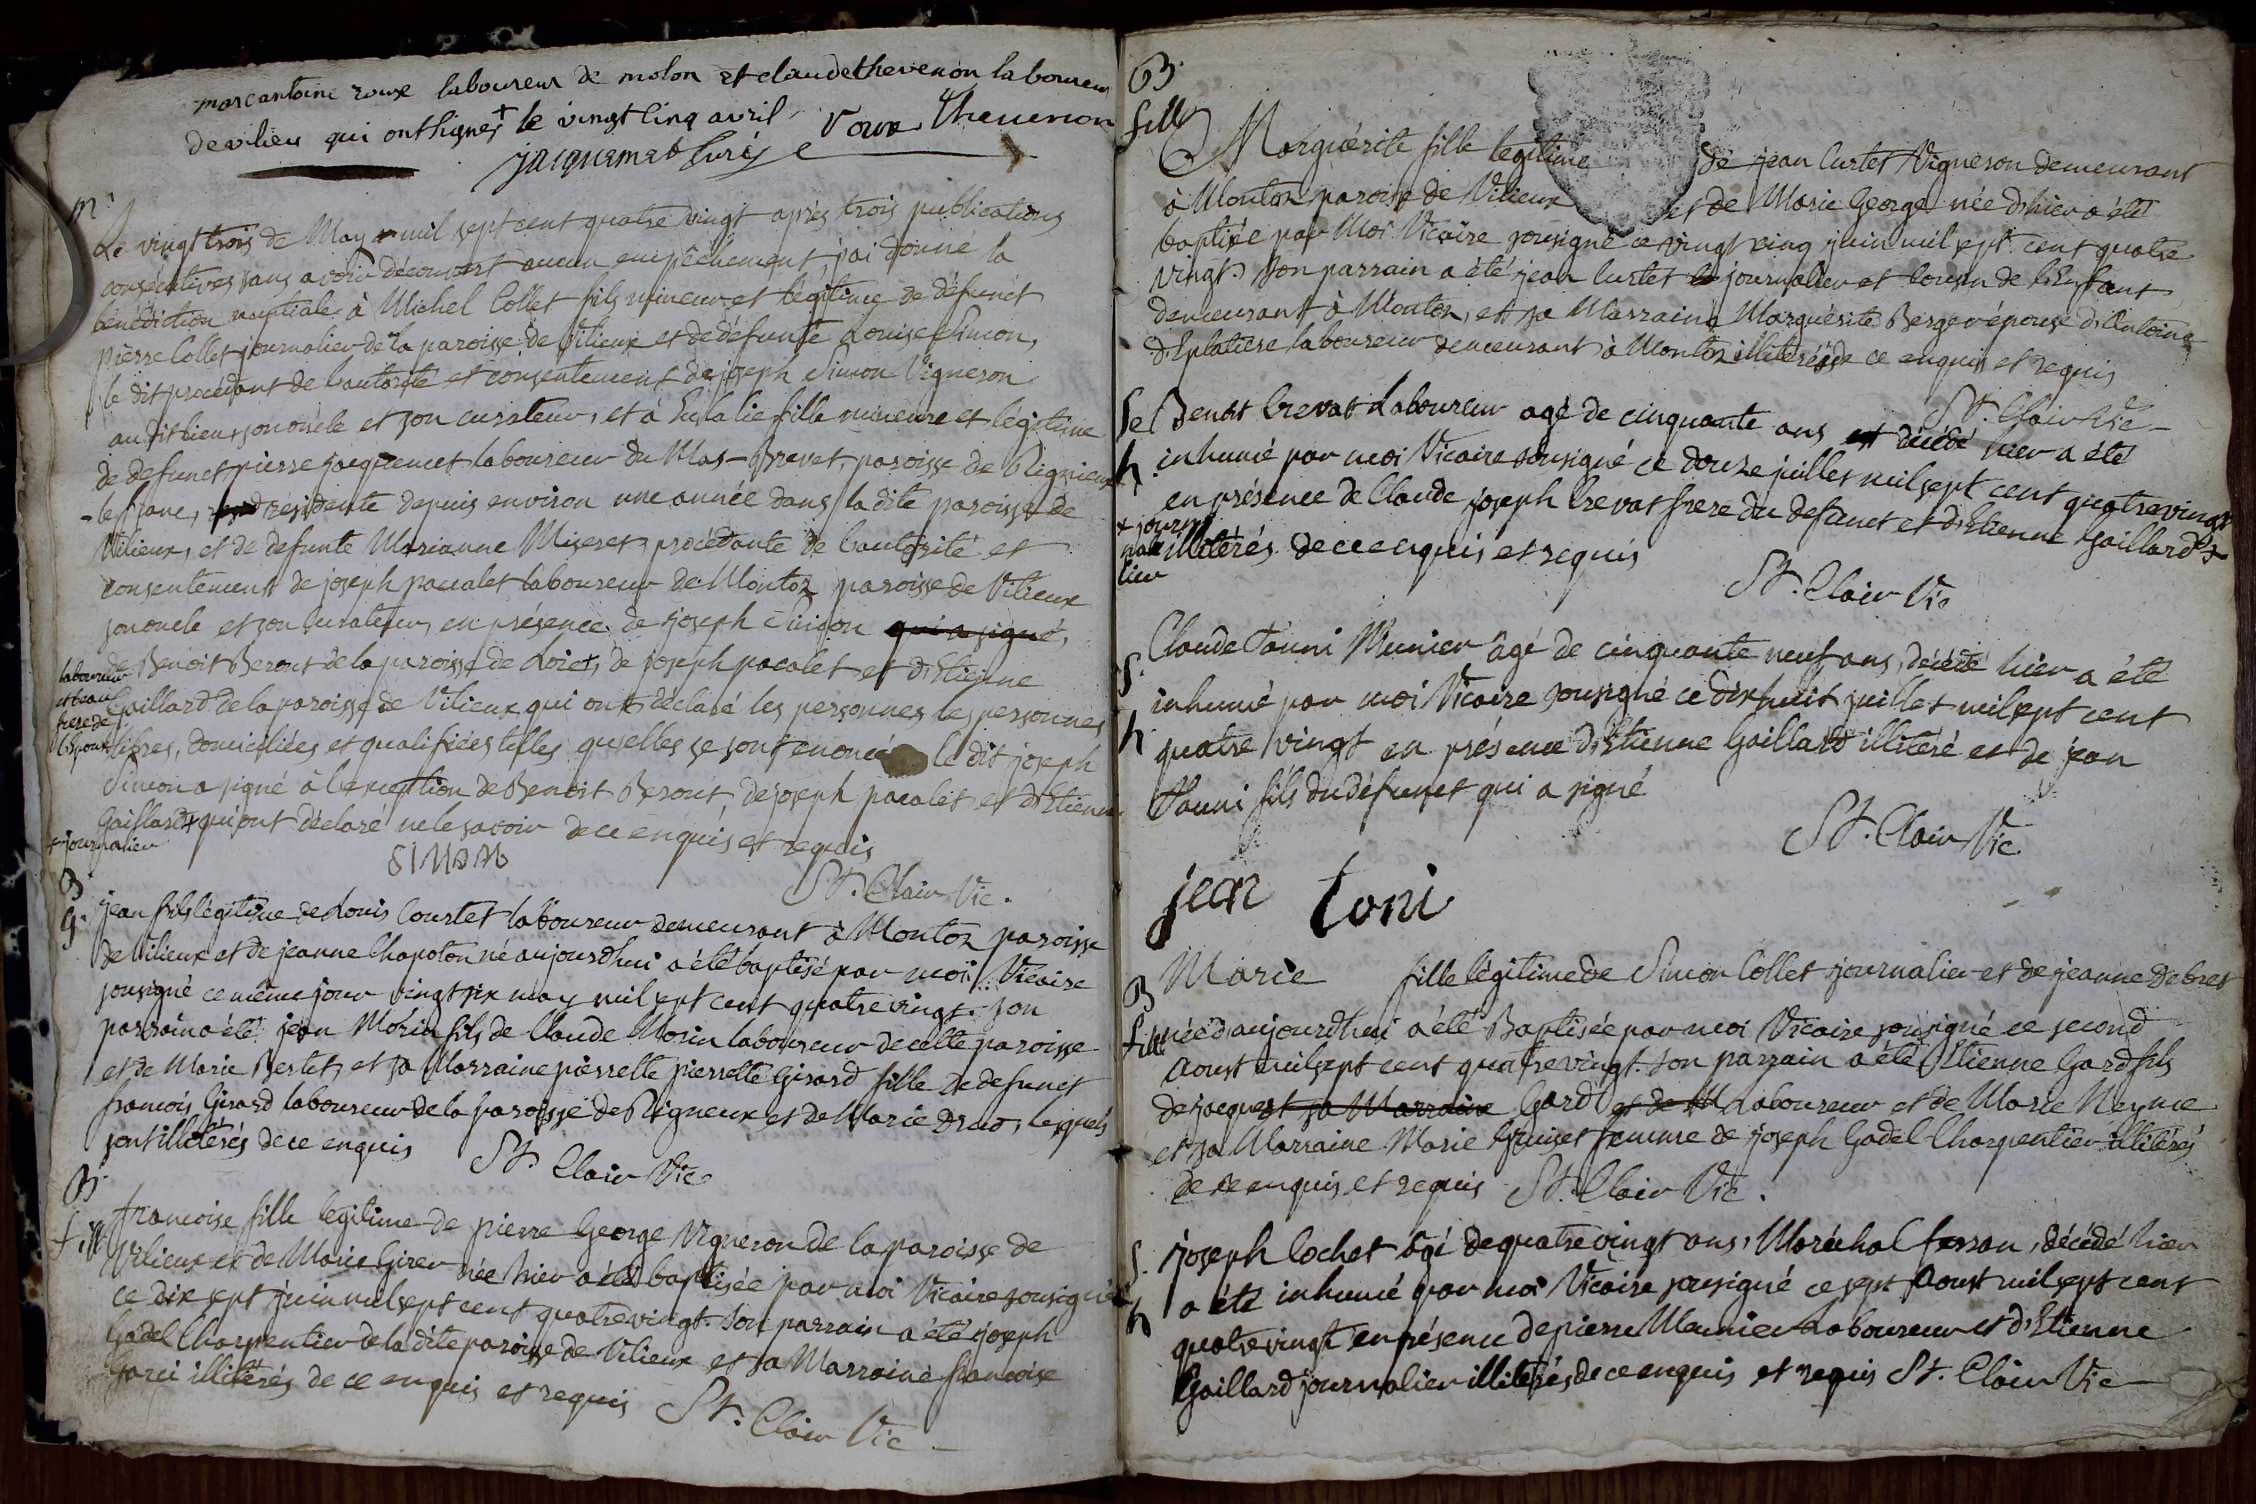 marcantoine roux laboureur de molon et claude thevenon laboureur
de vilieu qui ont signes + le vingt cinq avril Roux Thevenon
jacquemet curé
m.
Le vingt trois de May mil sept cent quatre vingt après trois publications
consécutives sans avoir découvert aucun empêchement j'ai donné la
bénédiction nuptiale à Michel Collet fils mineur et légitime de défunct
pierre Collet journalier de la paroisse de Vilieux et de défunte Louise Simon,
le dit procédant de l'autorité et consentement de joseph Simon Vigneron
au dit lieu, son oncle et son curateur, et à Eulalie fille mineure et légitime
de defunct pierre jacquemet laboureur du Mas-Brevet, paroisse de Rignieux
-le franc, résidente depuis environ une année dans la dite paroisse de
Vilieux, et de defunte Marianne Miseret, procédante de l'autorité et
consentement de joseph pacalet laboureur de Montoz paroisse de Vilieux
son oncle et son curateur, en présence de joseph Simon qui a signé,
de Benoit Berout de la paroisse de Loie +, de joseph pacalet et d'Etienne
laboureur
et beau
frere de
l'Epoux
Gaillard de la paroisse de Vilieux qui ont déclaré les personnes les personnes
libres, domiciliées et qualifiées telles qu'elles se sont enoncé le dit joseph
Simon a signé à l'exception de Benoit Berout, de joseph pacalet et d'Etienne
Gaillard + qui ont déclaré ne le savoir de ce enquis et requis
+ journalier
SIMON
St. Clair Vic.
B
g.
jean fils légitime de Louis Courtet laboureur demeurant à Montoz paroisse
de Vilieux et de jeanne Chapoton né aujourdhui a été baptisé par moi Vicaire
sousigné ce même jour vingt six may mil sept cent quatre vingt. son
parrain a été jean Morin fils de Claude Morin laboureur de cette paroisse
et de Marie Bertet, et sa Marraine pierrette pierrette Girard fille de defunct
francois Girard laboureur de la paroisse de Rigneux et de Marie, lesquels
sont illitérés de ce enquis
St. Clair Vic
B.
fill
francoise fille légitime de pierre George Vigneron de la paroisse de
Vilieux et de Marie Girer née hier a été baptisée par moi Vicaire sousigné
ce dix sept juin mil sept cent quatre vingt. son parrain a été joseph
Gadel Charpentier de la dite paroisse de Vilieux et sa Marraine francoise
illitérés de ce enquis et requis
St. Clair Vic
B.
fill
Marguérite fille légitime de jean Curtet Vigneron demeurant
à Montoz paroisse de Vilieux et de Marie George née d'hier a été
baptisée par Moi Vicaire sousigné ce vingt cinq juin mil sept cent quatre
vingt. Son parrain a été jean Curtet journalier et cousin de l'Enfant
demeurant à Montoz, et sa Marraine Marguérite Berger épouse d'Antoine
d'Eplatiere laboureur demeurant à Montoz illitérés de ce enquis et requis
St. Clair Vic
Se
h
Benoit Crevat Laboureur agé de cinquante ans est décédé hier a été
inhumé par moi Vicaire sousigné ce douze juillet mil sept cent quatre vingt
en présence de Claude joseph Crevat frere du defunct et d'Etienne Gaillard +
+ journalier
illitérés de ce enquis et requis
St. Clair Vic
S.
h
Claude Tauni Munier âgé de cinquante neuf ans, décédé hier a été
inhumé par moi Vicaire sousigné ce dix huit juillet mil sept cent
quatre vingt en présence d'Etienne Gaillard illitéré et de jean
Tauni fils du défunct qui a signé
St. Clair Vic
jean toni
B
fill
Marie fille légitime de Simon Collet journalier et de jeanne Debret
née d'aujourdhui a été Baptisée par moi Vicaire sousigné ce second
Aoust mil sept cent quatre vingt. son parrain a été Etienne Gard fils
de jacques et sa Marraine Gard et de M Laboureur et de Marie Neyme
et sa Marraine Marie femme de joseph Gadel Charpentier illitérés
de ce enquis et requis St. Clair Vic.
S.
h
joseph Cochet âgé de quatre vingt ans, Maréchal ferran, décédé hier
a été inhumé par moi Vicaire sousigné ce sept Aoust mil sept cent
quatre vingt en présence de pierre Meunier Laboureur et d'Etienne
Gaillard journalier illitérés de ce enquis et requis St. Clair Vic